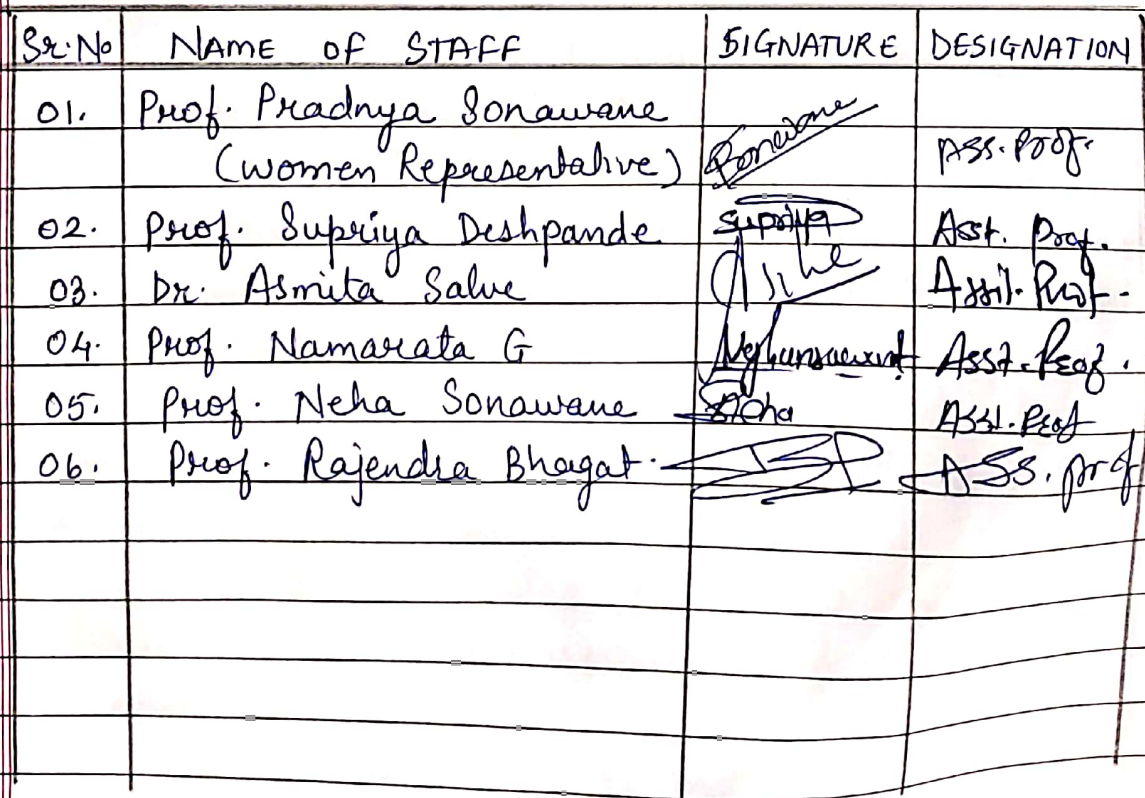 Sr.No NAME OF STAFF SIGNATURE DESIGNATION
01. Prof. Pradnya Sonawane
(women Representative) Sonawane Ass. Prof.
02. Prof. Supriya Deshpande Supriya Asst. Prof.
03. Dr. Asmita Salve Assit. Prof.
04. Prof. Namarata G Asst. Prof.
05. Prof. Neha Sonawane Neha Asst. Prof
06. Prof. Rajendra Bhagat. Ass. prof